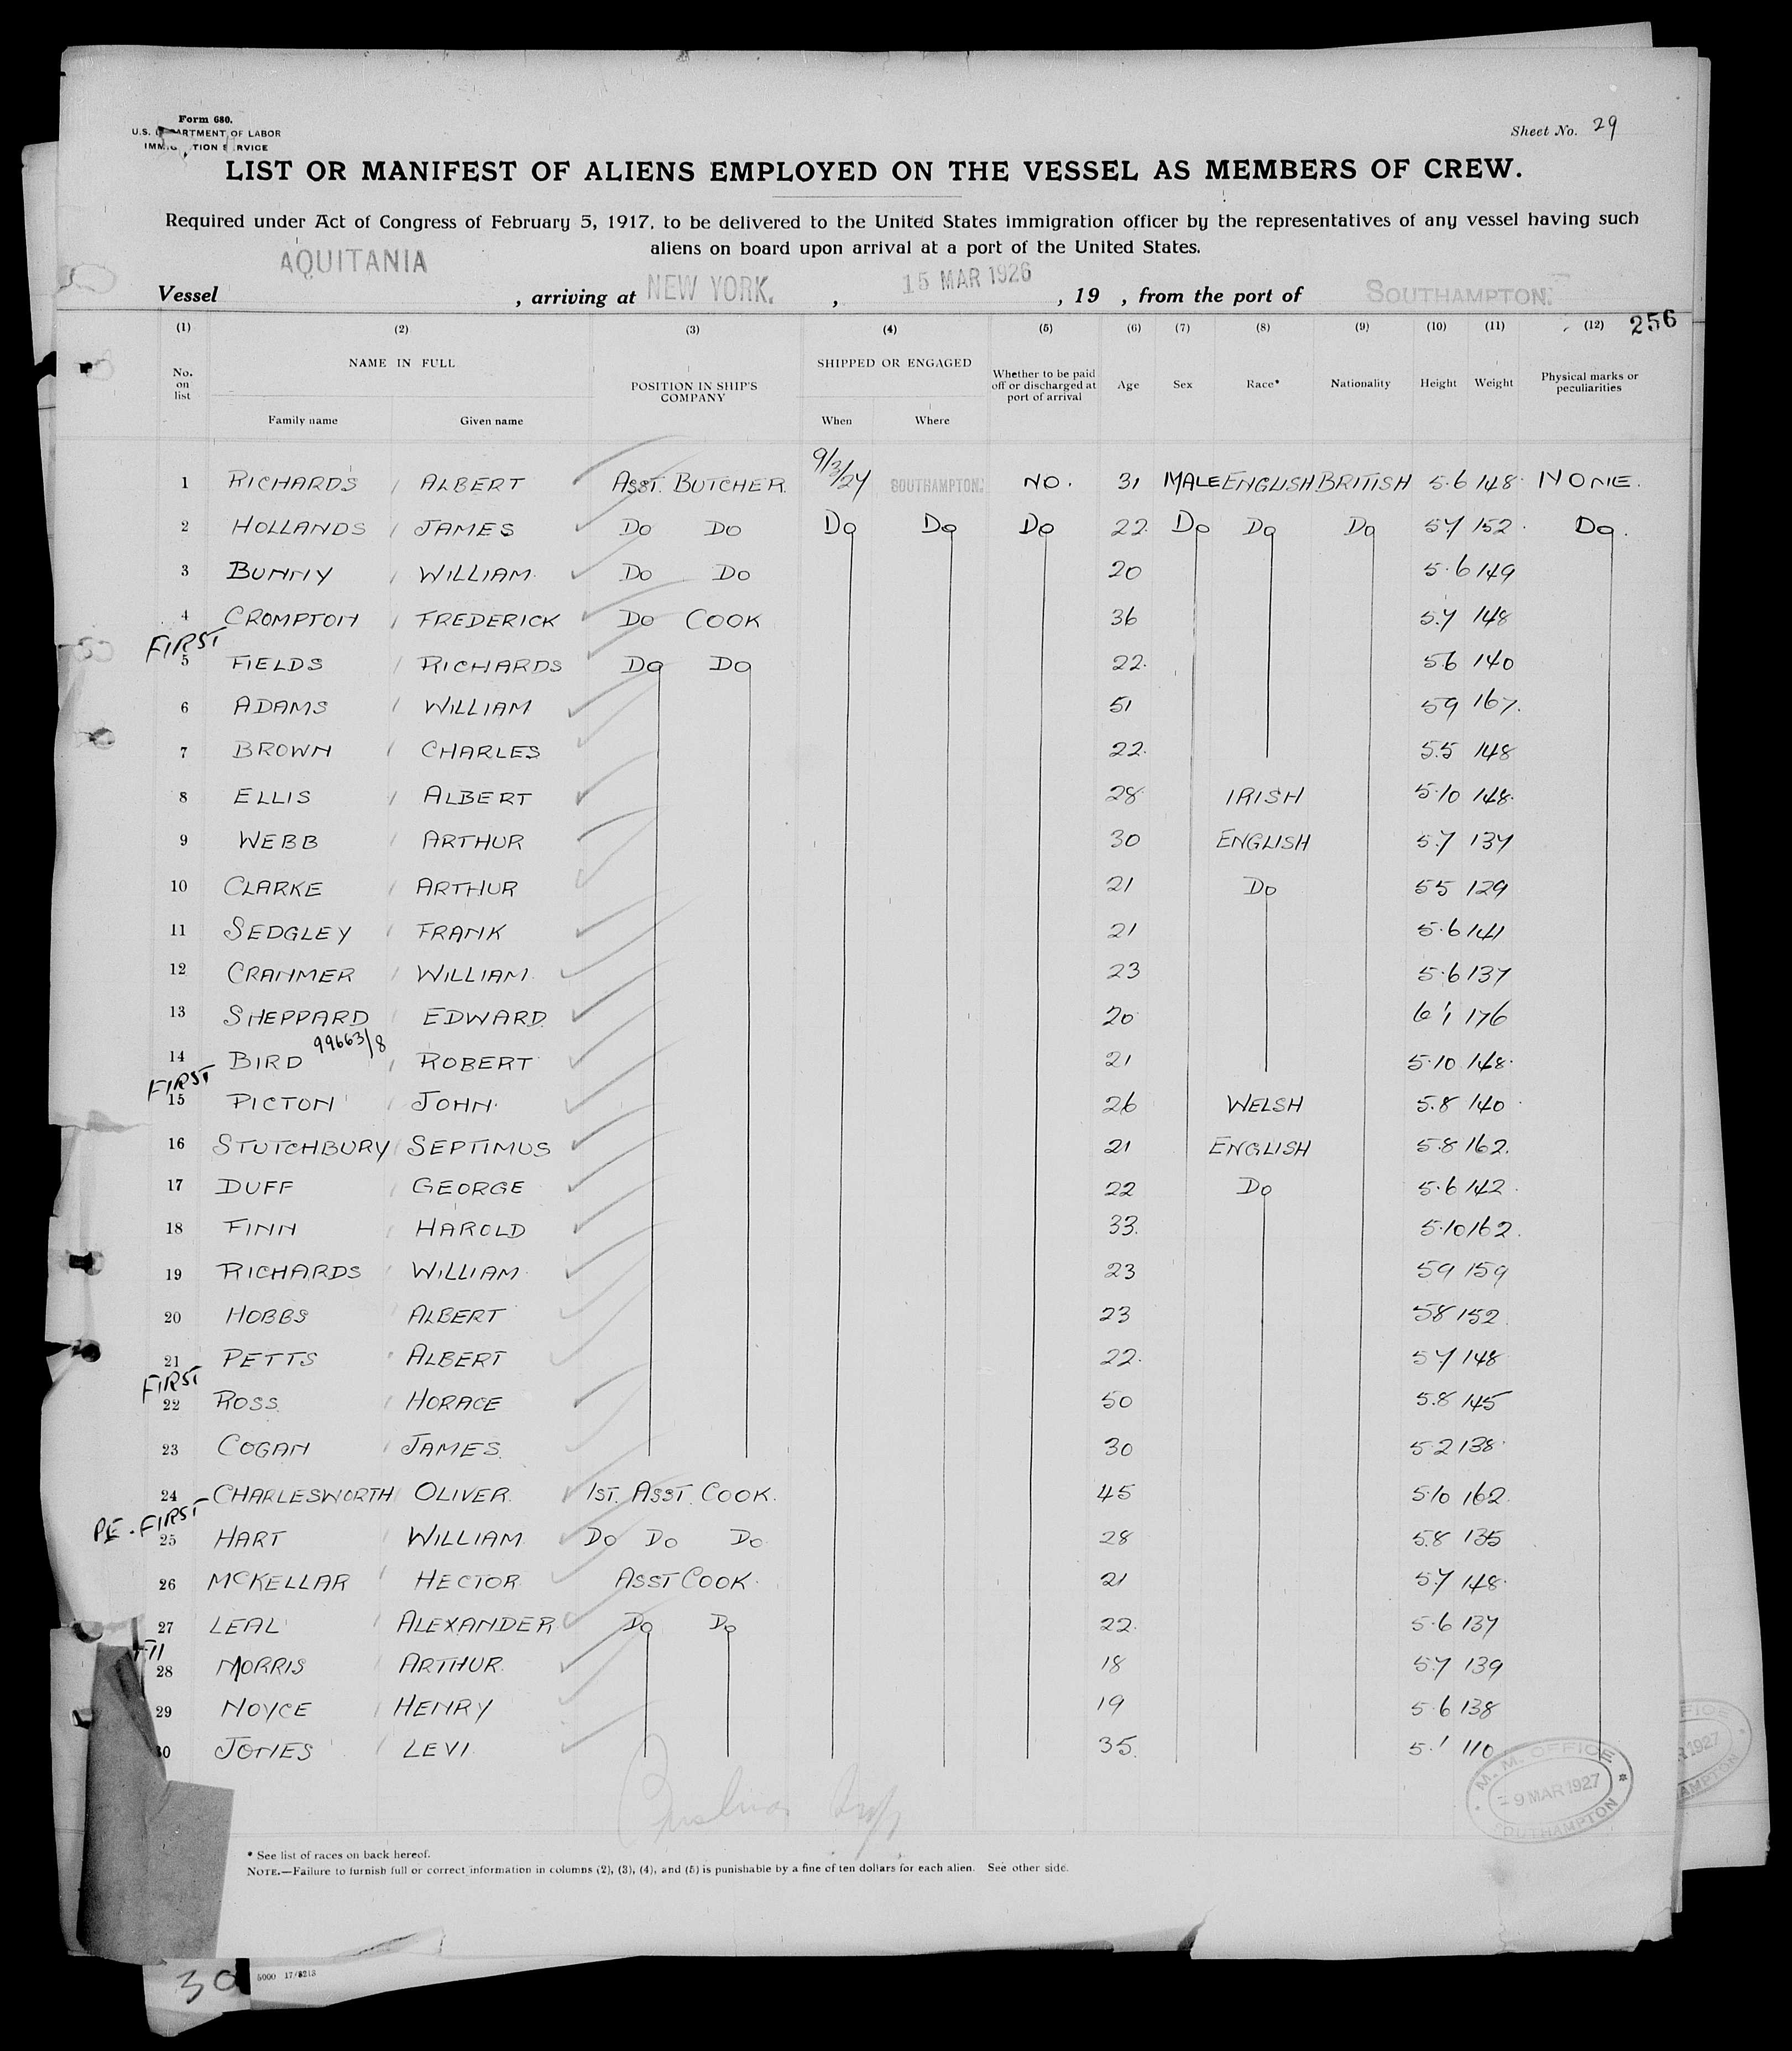 Form 680.
U.S. D ARTMENT OF LABOR
IMMIG TION SERVICE
Sheet No. 29
LIST OR MANIFEST OF ALIENS EMPLOYED ON THE VESSEL AS MEMBERS OF CREW.
Required under Act of Congress of February 5, 1917, to be delivered to the United States immigration officer by the representatives of any vessel having such
aliens on board upon arrival at a port of the United States.
Vessel AQUITANIA , arriving at NEW YORK. , 15 MAR 1926 , 19 , from the port of SOUTHAMPTON.
(1) (2) (3) (4) (5) (6) (7) (8) (9) (10) (11) (12) 256
No. on list NAME IN FULL Family name Given name POSITION IN SHIP'S COMPANY SHIPPED OR ENGAGED When Where Whether to be paid off or discharged at port of arrival Age Sex Race* Nationality Height Weight Physical marks or peculiarities
1 RICHARDS ALBERT ASST. BUTCHER. 9/3/27 SOUTHAMPTON. NO. 31 MALE ENGLISH BRITISH 5.6 148 NONE.
2 HOLLANDS JAMES DO DO DO DO DO 22 DO DO DO 57 152 DO.
3 BUNNY WILLIAM. DO DO 20 5.6 149
4 CROMPTON FREDERICK DO COOK 36 5.7 148
FIRST
5 FIELDS RICHARDS DO DO 22. 56 140
6 ADAMS WILLIAM 51 59 167.
7 BROWN CHARLES 22. 5.5 148
8 ELLIS ALBERT 28 IRISH 5.10 148.
9 WEBB ARTHUR 30 ENGLISH 5.7 137
10 CLARKE ARTHUR 21 DO 55 129
11 SEDGLEY FRANK 21 5.6 141
12 CRANMER WILLIAM. 23 5.6 137
13 SHEPPARD EDWARD. 20 6'1 176
99663/8
14 BIRD ROBERT 21 5.10 148.
FIRST
15 PICTON JOHN. 26 WELSH 5.8 140
16 STUTCHBURY SEPTIMUS 21 ENGLISH 5.8 162.
17 DUFF GEORGE 22 DO 5.6 142.
18 FINN HAROLD 33. 5.10 162.
19 RICHARDS WILLIAM. 23 59 159
20 HOBBS ALBERT 23 58 152
21 PETTS ALBERT 22. 57 148
FIRST
22 ROSS HORACE 50 5.8 145
23 COGAN JAMES. 30 5.2 138.
24 CHARLESWORTH OLIVER. 1ST. ASST. COOK. 45 5.10 162.
PE. FIRST
25 HART WILLIAM. DO DO DO 28 5.8 135
26 MCKELLAR HECTOR. ASST COOK. 21 5.7 148.
27 LEAL ALEXANDER DO DO 22. 5.6 137
28 MORRIS ARTHUR. 18 5.7 139
29 NOYCE HENRY 19 5.6 138
30 JONES LEVI 35. 5.1 110
M. M. OFFICE
9 MAR 1927
SOUTHAMPTON
* See list of races on back hereof.
NOTE.—Failure to furnish full or correct information in columns (2), (3), (4), and (5) is punishable by a fine of ten dollars for each alien. See other side.
30
5000 17/8213